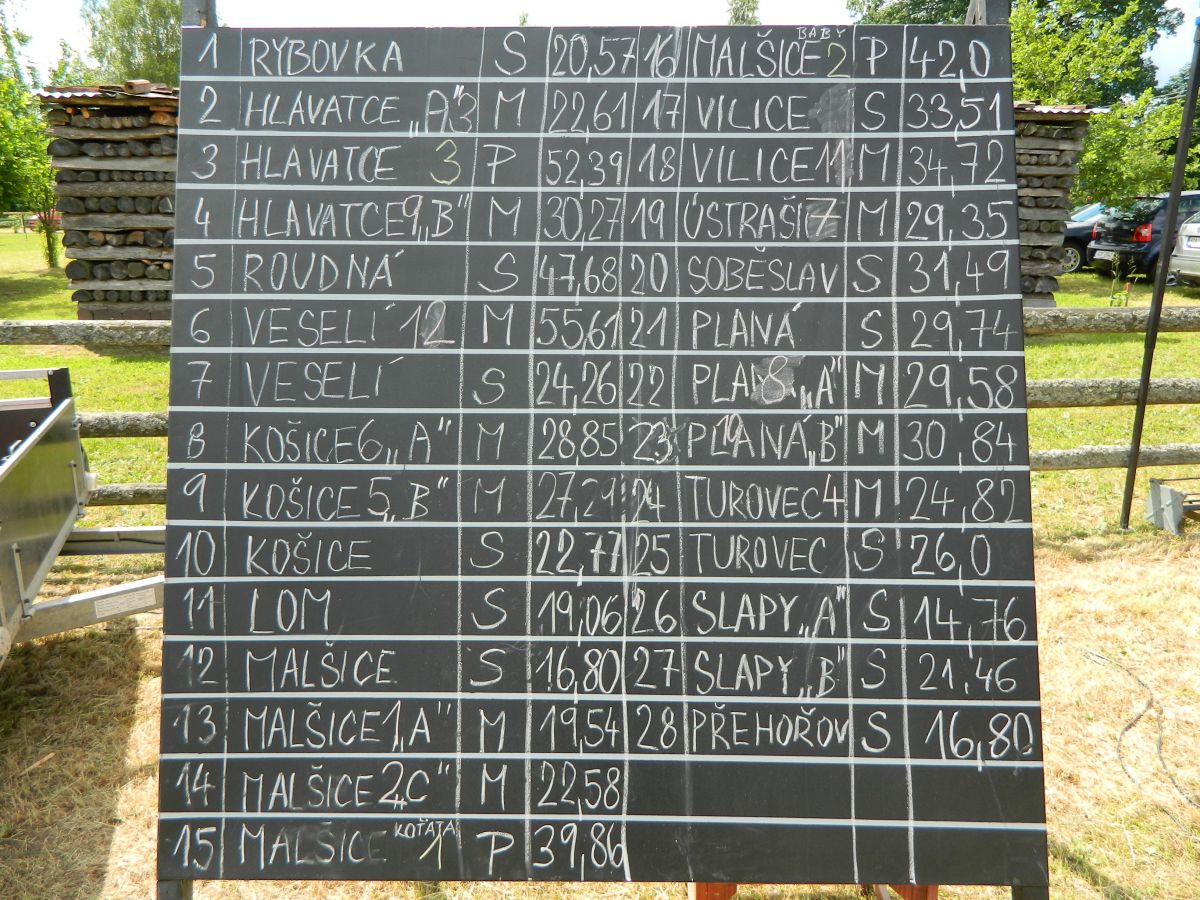 1 RYBOVKA S 20,57
2 HLAVATCE „A" 3 M 22,61
3 HLAVATCE 3 P 52,39
4 HLAVATCE 9 „B" M 30,27
5 ROUDNÁ S 47,68
6 VESELÍ 12 M 55,61
7 VESELÍ S 24,26
8 KOŠICE 6 „A" M 28,85
9 KOŠICE 5 „B" M 27,29
10 KOŠICE S 22,77
11 LOM S 19,06
12 MALŠICE S 16,80
13 MALŠICE 1 „A" M 19,54
14 MALŠICE 2 „C" M 22,58
15 MALŠICE KOŤATA 1 P 39,86
16 MALŠICE BABY 2 P 42,0
17 VILICE S 33,51
18 VILICE 11 M 34,72
19 ÚSTRAŠÍ 7 M 29,35
20 SOBĚSLAV S 31,49
21 PLANÁ S 29,74
22 PLANÁ 8 „A" M 29,58
23 PLANÁ 10 „B" M 30,84
24 TUROVEC 4 M 24,82
25 TUROVEC S 26,0
26 SLAPY „A" S 14,76
27 SLAPY „B" S 21,46
28 PŘEHOŘOV S 16,80